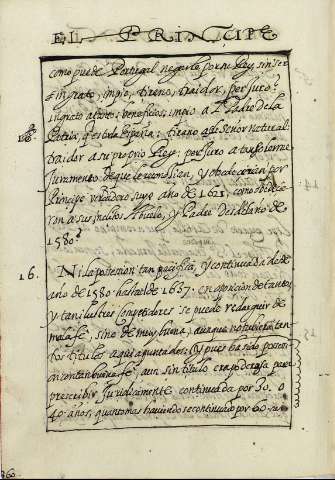 EL PRINCIPE
como puede Portugal negarle por su Rey, sin ser
ingrato, impio, tirano, traidor, perjuro?
ingrato a los beneficios; impio a Padre de la
Patria, que es toda España; tirano a su Señor natural:
traidor a su proprio Rey: perjuro a tan solemne
Juramento de que le rendisen, y obedecerian por
Principe verdadero suyo año de 1601 como obedecie
ran a sus inclitos Abuelo, y Padre desde el año de
1580?
16. Ni la posession tan pacifica, y continuada desde
año de 1580 hasta el de 1657. en oposicion de tantos,
y tan ilustres Competidores se puede redarguir de
mala fe, sino de muy buena; aunque no tubiera tan
tos titulos aqui apuntados: Y pues ha sido possesi
on con tan buena fe, aun sin titulo era poderosa para
prescribir Juridicamente continuada por 30. o
40 años, quanto mas haviendose continuado por 60